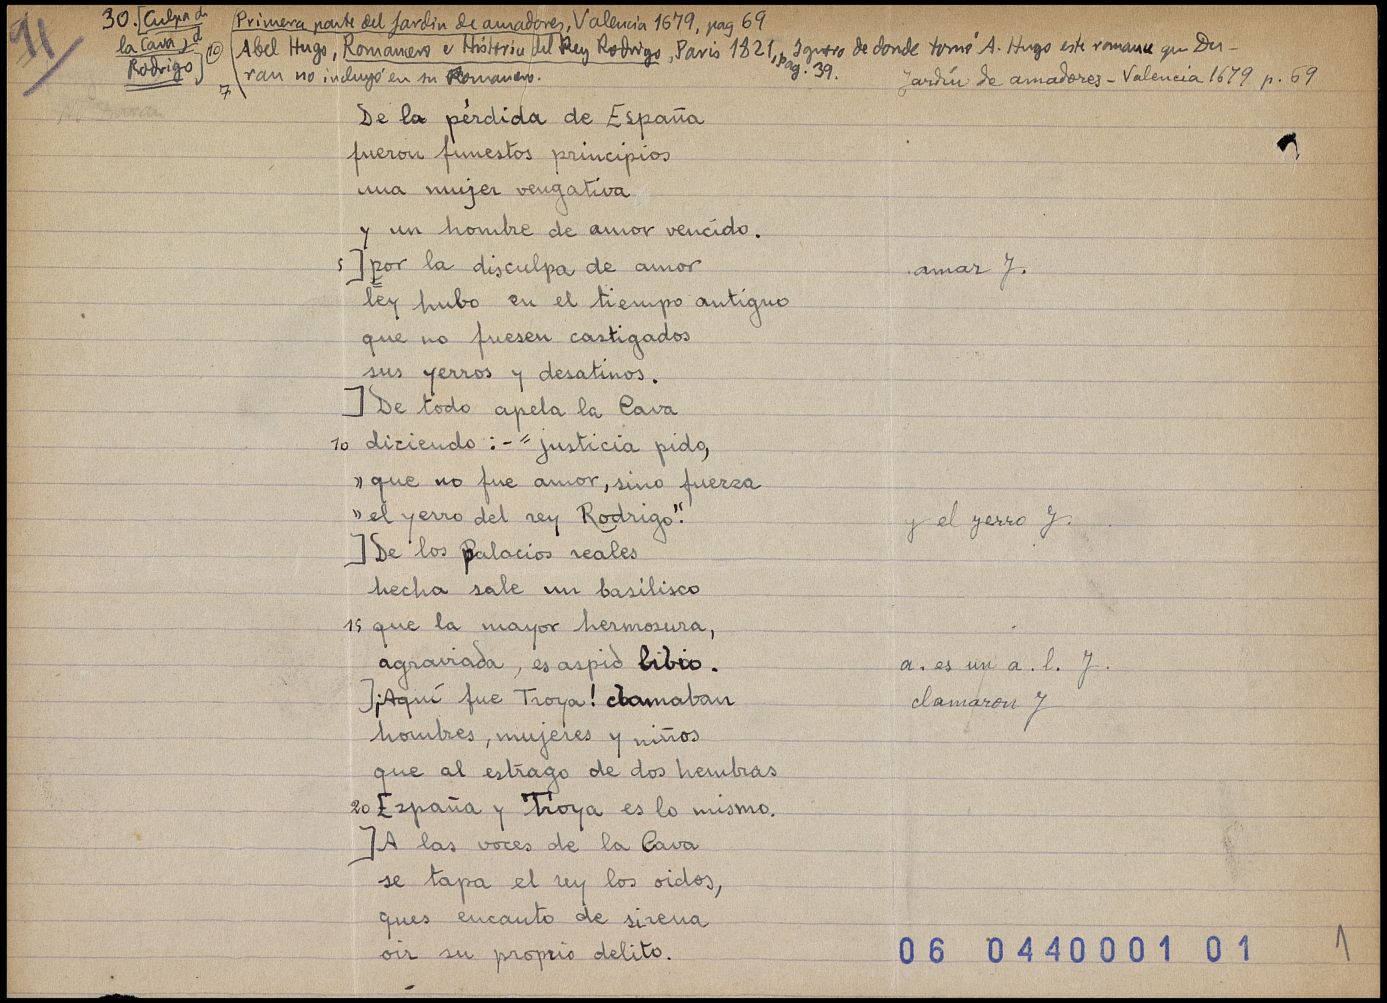 91
30. [Culpa de la Cava, d Rodrigo] 10
Primera parte del Jardin de amadores, Valencia 1679, pag 69
Abel Hugo, Romancero e Historia del Rey Rodrigo, Paris 1821, pag. 39. Ignoro de donde tomó A. Hugo este romance que Du-
ran no incluyó en su Romancero.
Jardín de amadores - Valencia 1679 p. 69
7
De la pérdida de España
fueron funestos principios
una mujer vengativa
y un hombre de amor vencido.
5 ] por la disculpa de amor amar J.
ley hubo en el tiempo antiguo
que no fuesen castigados
sus yerros y desatinos.
] De todo apela la Cava
10 diciendo : - "justicia pido,
" que no fue amor, sino fuerza
" el yerro del rey Rodrigo". y el yerro J.
] De los palacios reales
hecha sale un basilisco
15 que la mayor hermosura,
agraviada, es aspid libio. a. es un a. l. J.
] ¡Aquí fue Troya! clamaban clamaron J
hombres, mujeres y niños
que al estrago de dos hembras
20 España y Troya es lo mismo.
] A las voces de la Cava
se tapa el rey los oidos,
ques encanto de sirena
oir su proprio delito.
06 0440001 01 1